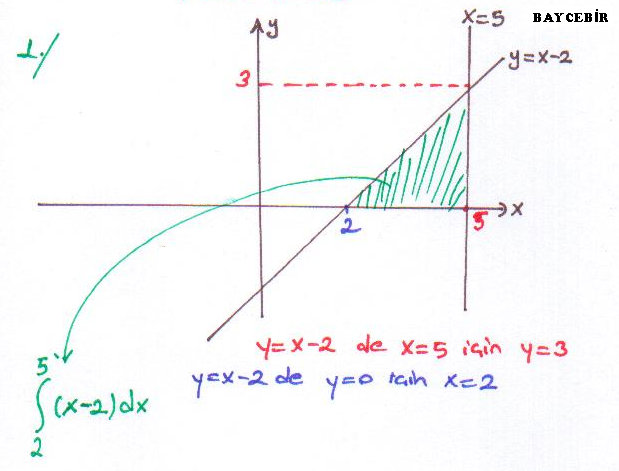 BAYCEBİR
1.
y
x=5
y=x-2
3
x
2
5
y=x-2 de x=5 için y=3
y=x-2 de y=0 için x=2
5
∫ (x-2)dx
2